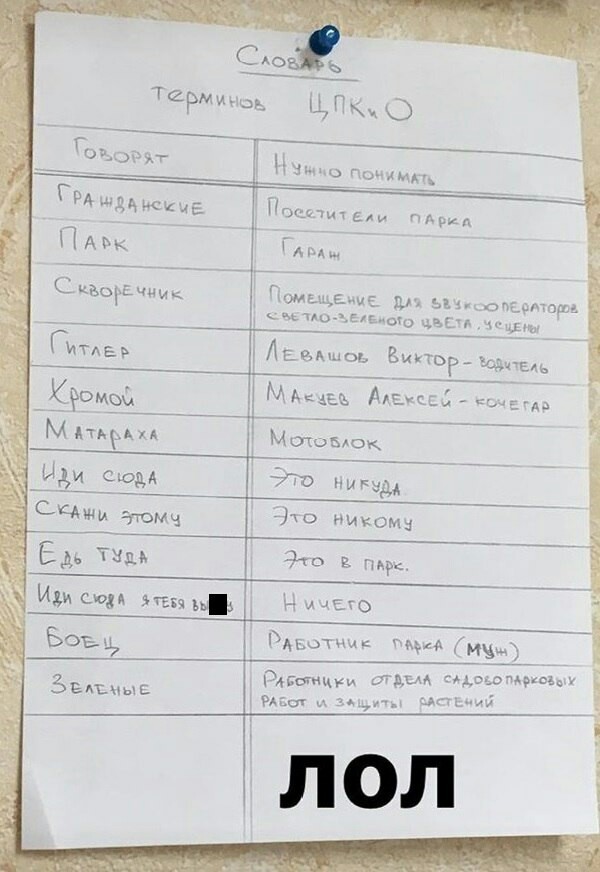 Словарь
терминов ЦПКиО
Говорят Нужно понимать
Гражданские Посетители парка
Парк Гараж
Скворечник Помещение для звукооператоров
светло-зеленого цвета, у сцены
Гитлер Левашов Виктор - водитель
Хромой Макуев Алексей - кочегар
Матараха Мотоблок
Иди сюда Это никуда
Скажи этому Это никому
Едь туда Это в парк.
Иди сюда я тебя вы у Ничего
Боец Работник парка (муж)
Зеленые Работники отдела садово парковых
работ и защиты растений
лол